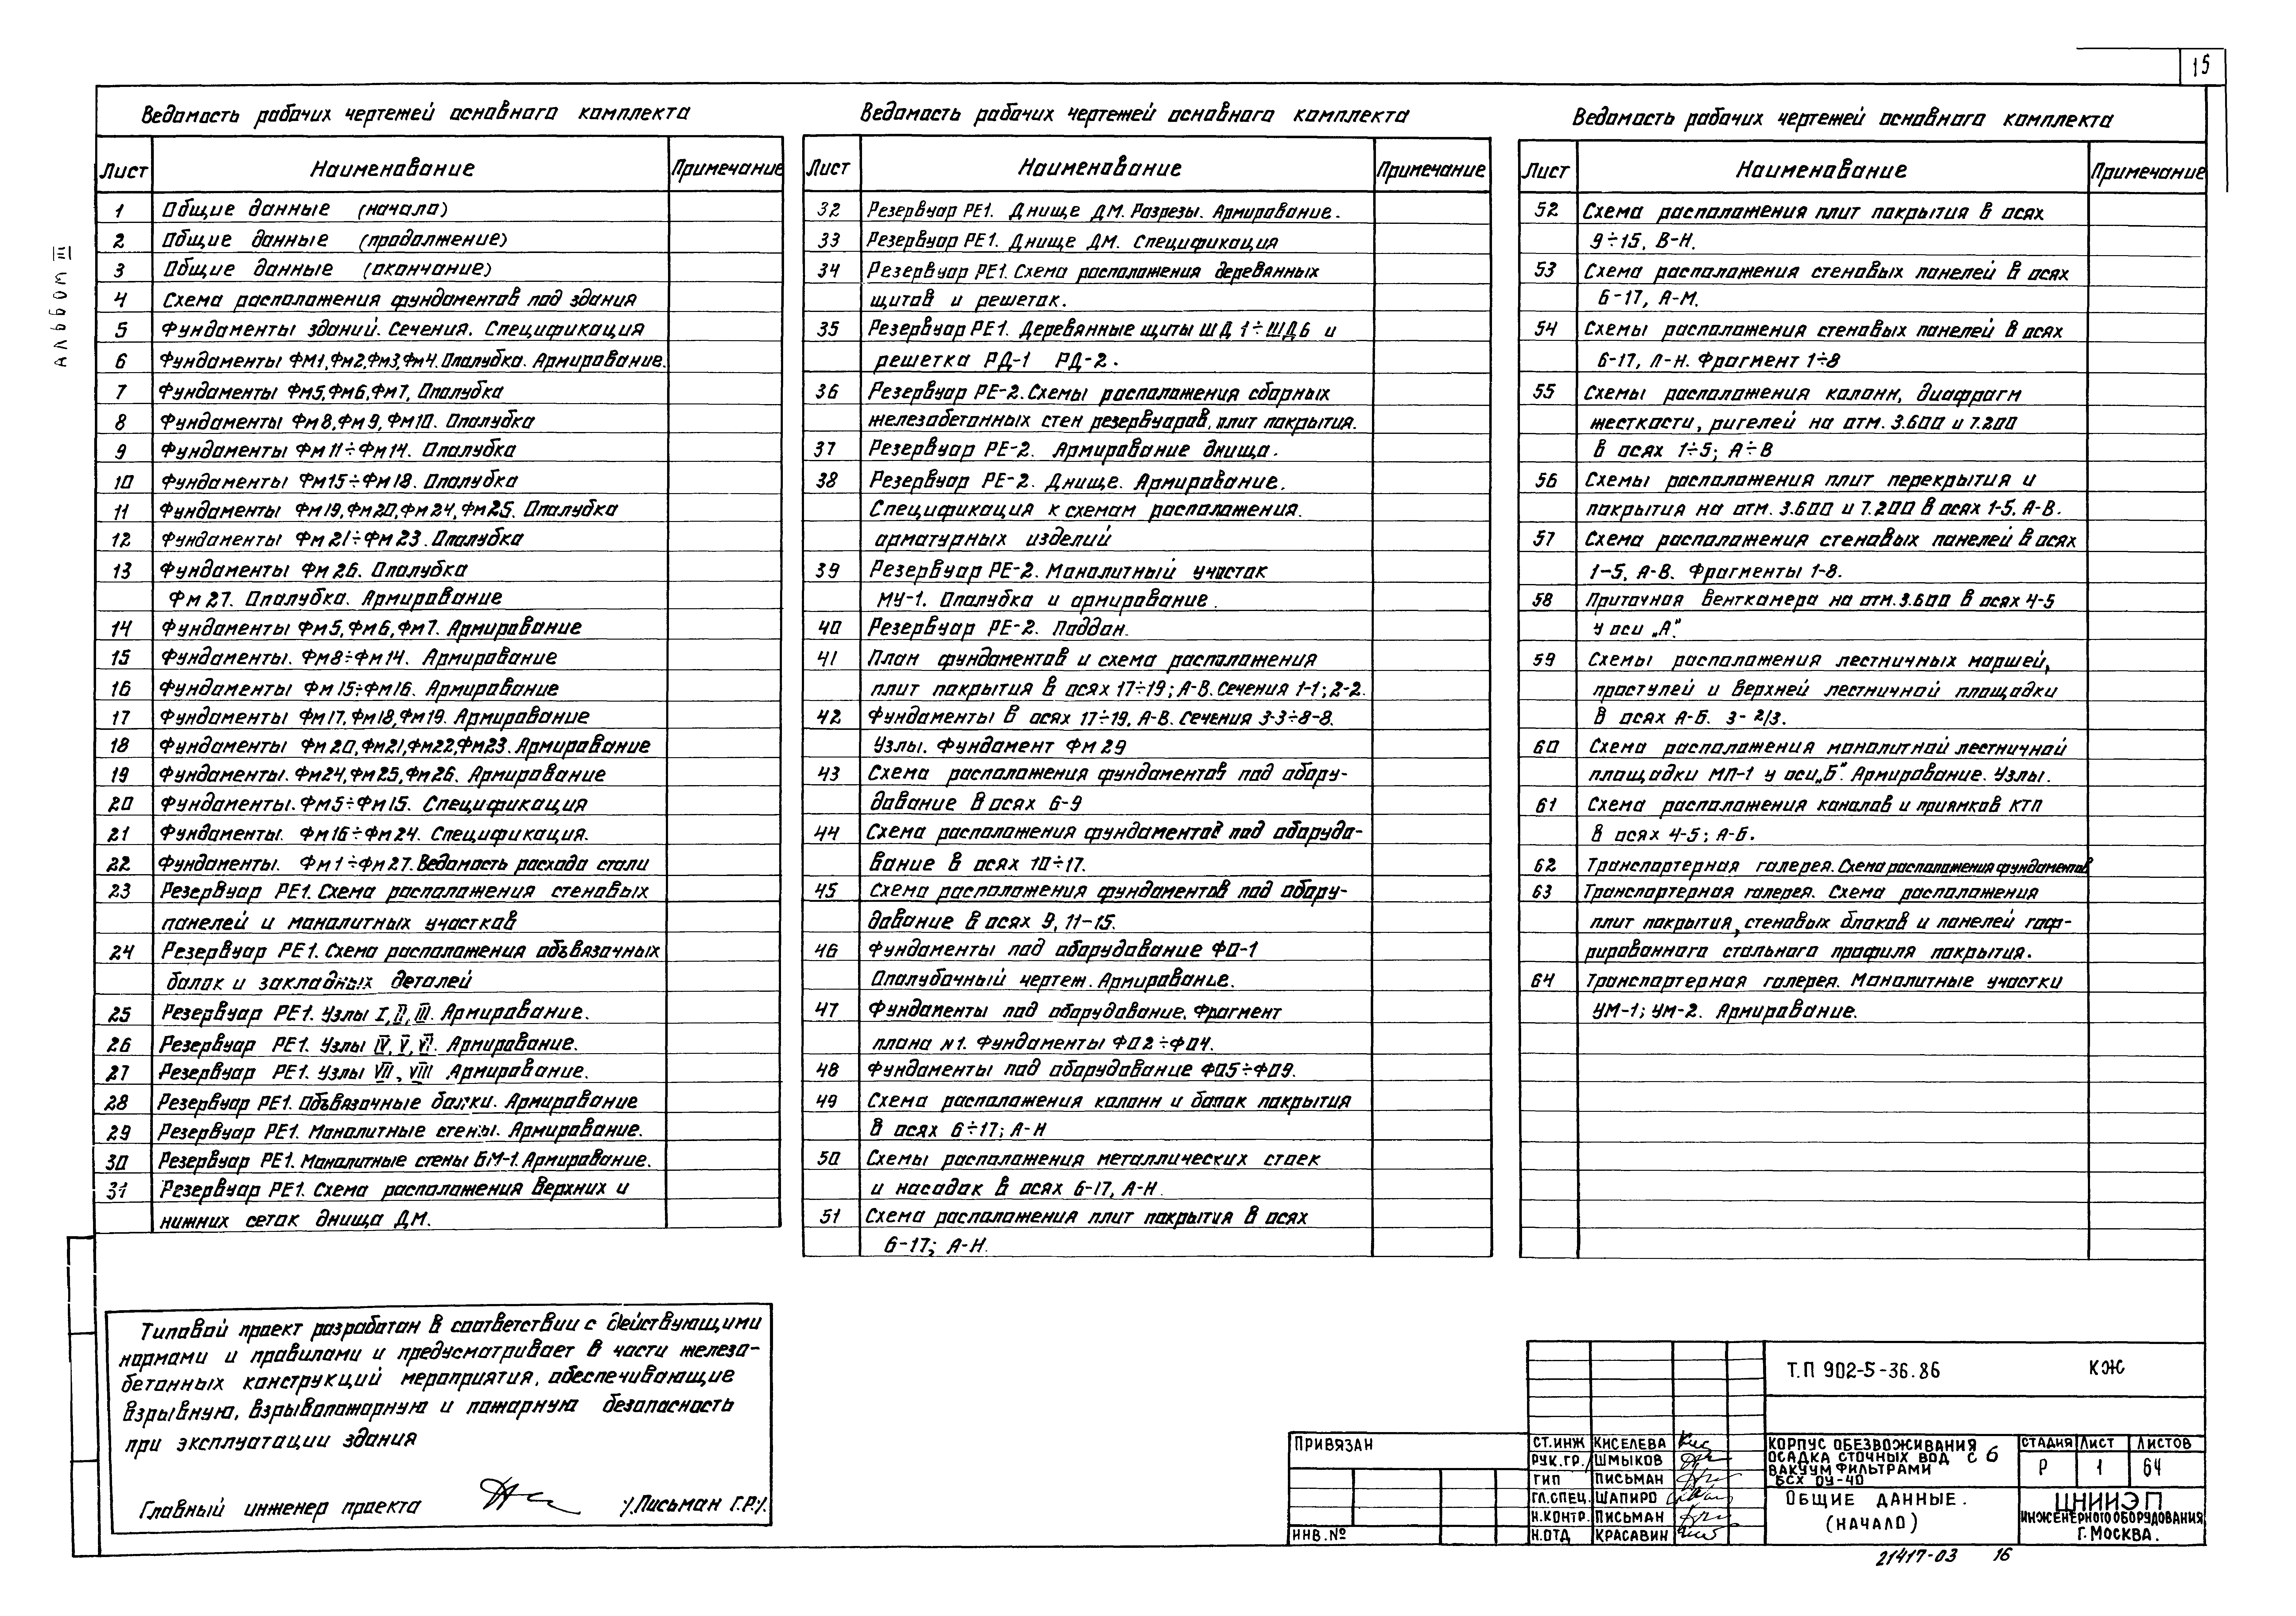 15
Альбом III
Ведомость рабочих чертежей основного комплекта
Лист Наименование Примечание
1 Общие данные (начало)
2 Общие данные (продолжение)
3 Общие данные (окончание)
4 Схема расположения фундаментов под здания
5 Фундаменты зданий. Сечения. Спецификация
6 Фундаменты Фм1, Фм2, Фм3, Фм4. Опалубка. Армирование.
7 Фундаменты Фм5, Фм6, Фм7, Опалубка
8 Фундаменты Фм8, Фм9, Фм10. Опалубка
9 Фундаменты Фм11÷Фм14. Опалубка
10 Фундаменты Фм15÷Фм18. Опалубка
11 Фундаменты Фм19, Фм20, Фм24, Фм25. Опалубка
12 Фундаменты Фм21÷Фм23. Опалубка
13 Фундаменты Фм26. Опалубка
Фм27. Опалубка. Армирование
14 Фундаменты Фм5, Фм6, Фм7. Армирование
15 Фундаменты. Фм8÷Фм14. Армирование
16 Фундаменты Фм15÷Фм16. Армирование
17 Фундаменты Фм17, Фм18, Фм19. Армирование
18 Фундаменты Фм20, Фм21, Фм22, Фм23. Армирование
19 Фундаменты. Фм24, Фм25, Фм26. Армирование
20 Фундаменты. Фм5÷Фм15. Спецификация
21 Фундаменты. Фм16÷Фм24. Спецификация.
22 Фундаменты. Фм1÷Фм27. Ведомость расхода стали
23 Резервуар РЕ1. Схема расположения стеновых
панелей и монолитных участков
24 Резервуар РЕ1. Схема расположения обвязочных
балок и закладных деталей
25 Резервуар РЕ1. Узлы I, II, III. Армирование.
26 Резервуар РЕ1. Узлы IV, V, VI. Армирование.
27 Резервуар РЕ1. Узлы VII, VIII Армирование.
28 Резервуар РЕ1. Обвязочные балки. Армирование
29 Резервуар РЕ1. Монолитные стены. Армирование.
30 Резервуар РЕ1. Монолитные стены БМ-1. Армирование.
31 Резервуар РЕ1. Схема расположения верхних и
нижних сеток днища ДМ.
Ведомость рабочих чертежей основного комплекта
Лист Наименование Примечание
32 Резервуар РЕ1. Днище ДМ. Разрезы. Армирование.
33 Резервуар РЕ1. Днище ДМ. Спецификация
34 Резервуар РЕ1. Схема расположения деревянных
щитов и решеток.
35 Резервуар РЕ1. Деревянные щиты ШД1÷ШД6 и
решетка РД-1 РД-2.
36 Резервуар РЕ-2. Схемы расположения сборных
железобетонных стен резервуаров, плит покрытия.
37 Резервуар РЕ-2. Армирование днища.
38 Резервуар РЕ-2. Днище. Армирование.
Спецификация к схемам расположения.
арматурных изделий
39 Резервуар РЕ-2. Монолитный участок
МУ-1. Опалубка и армирование.
40 Резервуар РЕ-2. Поддон.
41 План фундаментов и схема расположения
плит покрытия в осях 17÷19; А-В. Сечения 1-1; 2-2.
42 Фундаменты в осях 17÷19, А-В. Сечения 3-3÷8-8.
Узлы. Фундамент Фм29
43 Схема расположения фундаментов под обору-
дование в осях 6-9
44 Схема расположения фундаментов под оборудо-
вание в осях 10÷17.
45 Схема расположения фундаментов под обору-
дование в осях 9, 11-15.
46 Фундаменты под оборудование ФО-1
Опалубочный чертеж. Армирование.
47 Фундаменты под оборудование. Фрагмент
плана №1. Фундаменты ФО2÷ФО4.
48 Фундаменты под оборудование ФО5÷ФО9.
49 Схема расположения колонн и балок покрытия
в осях 6÷17; А-Н
50 Схемы расположения металлических стоек
и насадок в осях 6-17, А-Н.
51 Схема расположения плит покрытия в осях
6-17; А-Н.
Ведомость рабочих чертежей основного комплекта
Лист Наименование Примечание
52 Схема расположения плит покрытия в осях
9÷15, В-Н.
53 Схема расположения стеновых панелей в осях
6-17, А-М.
54 Схемы расположения стеновых панелей в осях
6-17, Л-Н. Фрагмент 1÷8
55 Схемы расположения колонн, диафрагм
жесткости, ригелей на отм. 3.600 и 7.200
в осях 1÷5; А÷В
56 Схемы расположения плит перекрытия и
покрытия на отм. 3.600 и 7.200 в осях 1-5. А-В.
57 Схема расположения стеновых панелей в осях
1-5, А-В. Фрагменты 1-8.
58 Приточная венткамера на отм. 3.600 в осях 4-5
у оси „А".
59 Схемы расположения лестничных маршей,
проступей и верхней лестничной площадки
в осях А-Б. 3-2/3.
60 Схема расположения монолитной лестничной
площадки МП-1 у оси „Б". Армирование. Узлы.
61 Схема расположения каналов и приямков КТП
в осях 4-5; А-Б.
62 Транспортерная галерея. Схема расположения фундаментов
63 Транспортерная галерея. Схема расположения
плит покрытия, стеновых блоков и панелей гоф-
рированного стального профиля покрытия.
64 Транспортерная галерея. Монолитные участки
УМ-1; УМ-2. Армирование.
Типовой проект разработан в соответствии с действующими
нормами и правилами и предусматривает в части железо-
бетонных конструкций мероприятия, обеспечивающие
взрывную, взрывопожарную и пожарную безопасность
при эксплуатации здания
Главный инженер проекта /Письман Г.Р./
ПРИВЯЗАН
ИНВ.№
СТ.ИНЖ КИСЕЛЕВА
РУК.ГР. ШМЫКОВ
ГИП ПИСЬМАН
ГЛ.СПЕЦ. ШАПИРО
Н.КОНТР. ПИСЬМАН
Н.ОТД КРАСАВИН
Т.П 902-5-36.86 КЖ
КОРПУС ОБЕЗВОЖИВАНИЯ
ОСАДКА СТОЧНЫХ ВОД С 6
ВАКУУМ ФИЛЬТРАМИ
БСХ ОУ-40
СТАДИЯ ЛИСТ ЛИСТОВ
Р 1 64
ОБЩИЕ ДАННЫЕ.
(НАЧАЛО)
ЦНИИЭП
ИНЖЕНЕРНОГО ОБОРУДОВАНИЯ
Г. МОСКВА.
21417-03 16